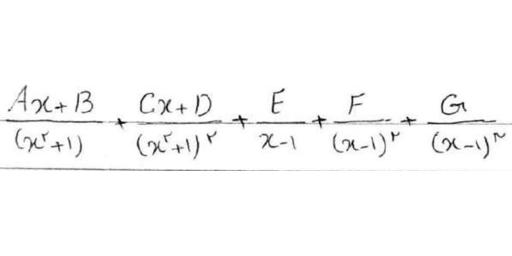 (Ax+B)/(x^۲+1) + (Cx+D)/(x^۲+1)^۲ + E/(x-1) + F/(x-1)^۲ + G/(x-1)^۳